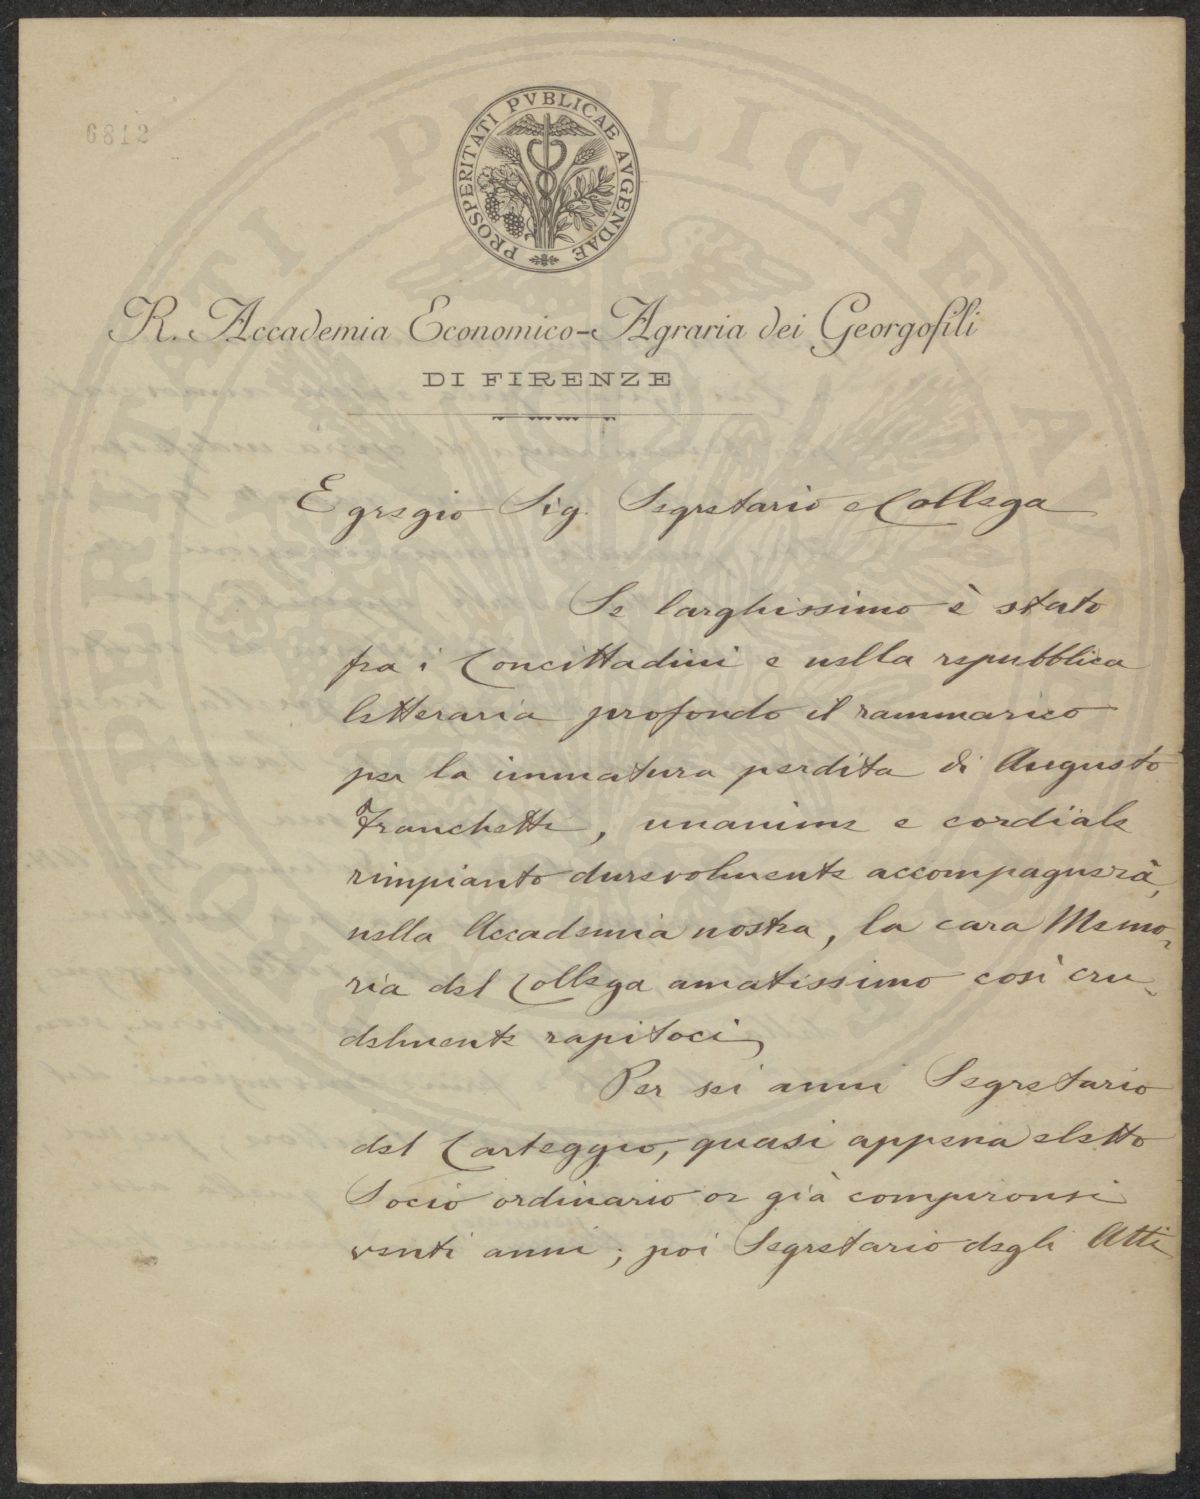 6812
PROSPERITATI PVBLICAE AVGENDAE
R. Accademia Economico-Agraria dei Georgofili
DI FIRENZE
Egregio Sig. Segretario e Collega
Se larghissimo è stato
fra i Concittadini e nella repubblica
letteraria profondo il rammarico
per la immatura perdita di Augusto
Franchetti, unanime e cordiale
rimpianto durevolmente accompagnerà,
nella Accademia nostra, la cara Memo-
ria del Collega amatissimo così cru-
delmente rapitoci.
Per sei anni Segretario
del Carteggio, quasi appena eletto
Socio ordinario or già compironsi
venti anni; poi Segretario degli Atti